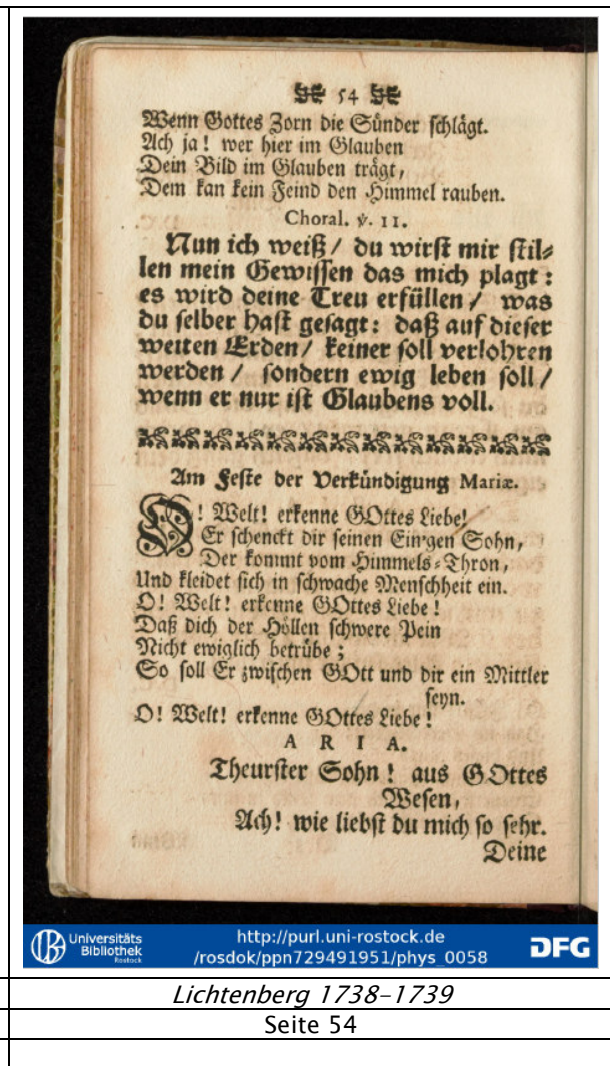 54
Wenn Gottes Zorn die Sünder schlägt.
Ach ja! wer hier im Glauben
Dein Bild im Glauben trägt,
Dem kan kein Feind den Himmel rauben.
Choral. v. 11.
Nun ich weiß / du wirst mir stil-
len mein Gewissen das mich plagt:
es wird deine Treu erfüllen / was
du selber hast gesagt: daß auf dieser
weiten Erden / keiner soll verlohren
werden / sondern ewig leben soll /
wenn er nur ist Glaubens voll.
Am Feste der Verkündigung Mariæ.
O! Welt! erkenne GOttes Liebe!
Er schenckt dir seinen Ein'gen Sohn,
Der kommt vom Himmels-Thron,
Und kleidet sich in schwache Menschheit ein.
O! Welt! erkenne GOttes Liebe!
Daß dich der Höllen schwere Pein
Nicht ewiglich betrübe;
So soll Er zwischen GOtt und dir ein Mittler
seyn.
O! Welt! erkenne GOttes Liebe!
ARIA.
Theurster Sohn! aus GOttes
Wesen,
Ach! wie liebst du mich so sehr.
Deine
Universitäts
Bibliothek
Rostock
http://purl.uni-rostock.de
/rosdok/ppn729491951/phys_0058
DFG
Lichtenberg 1738-1739
Seite 54